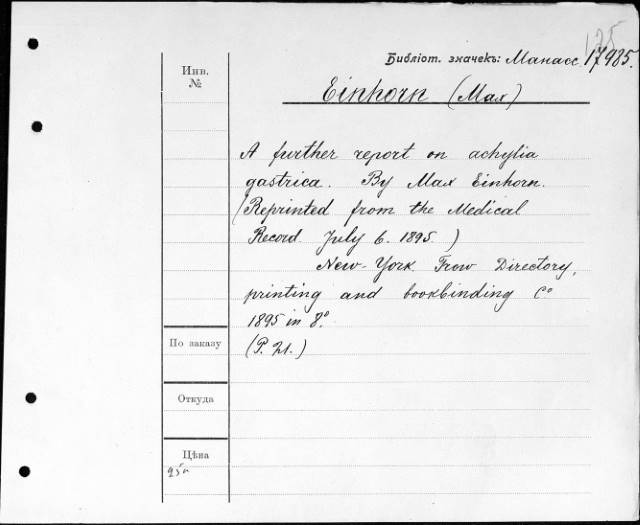 125
Библіот. значекъ: Манасс. 17985.
Инв.
№
Einhorn (Max)
A further report on achylia
gastrica. By Max Einhorn.
(Reprinted from the Medical
Record. July 6. 1895.)
New-York. Trow Directory,
printing and bookbinding Cº
1895 in 8º.
(P. 21.)
По заказу
Откуда
Цѣна